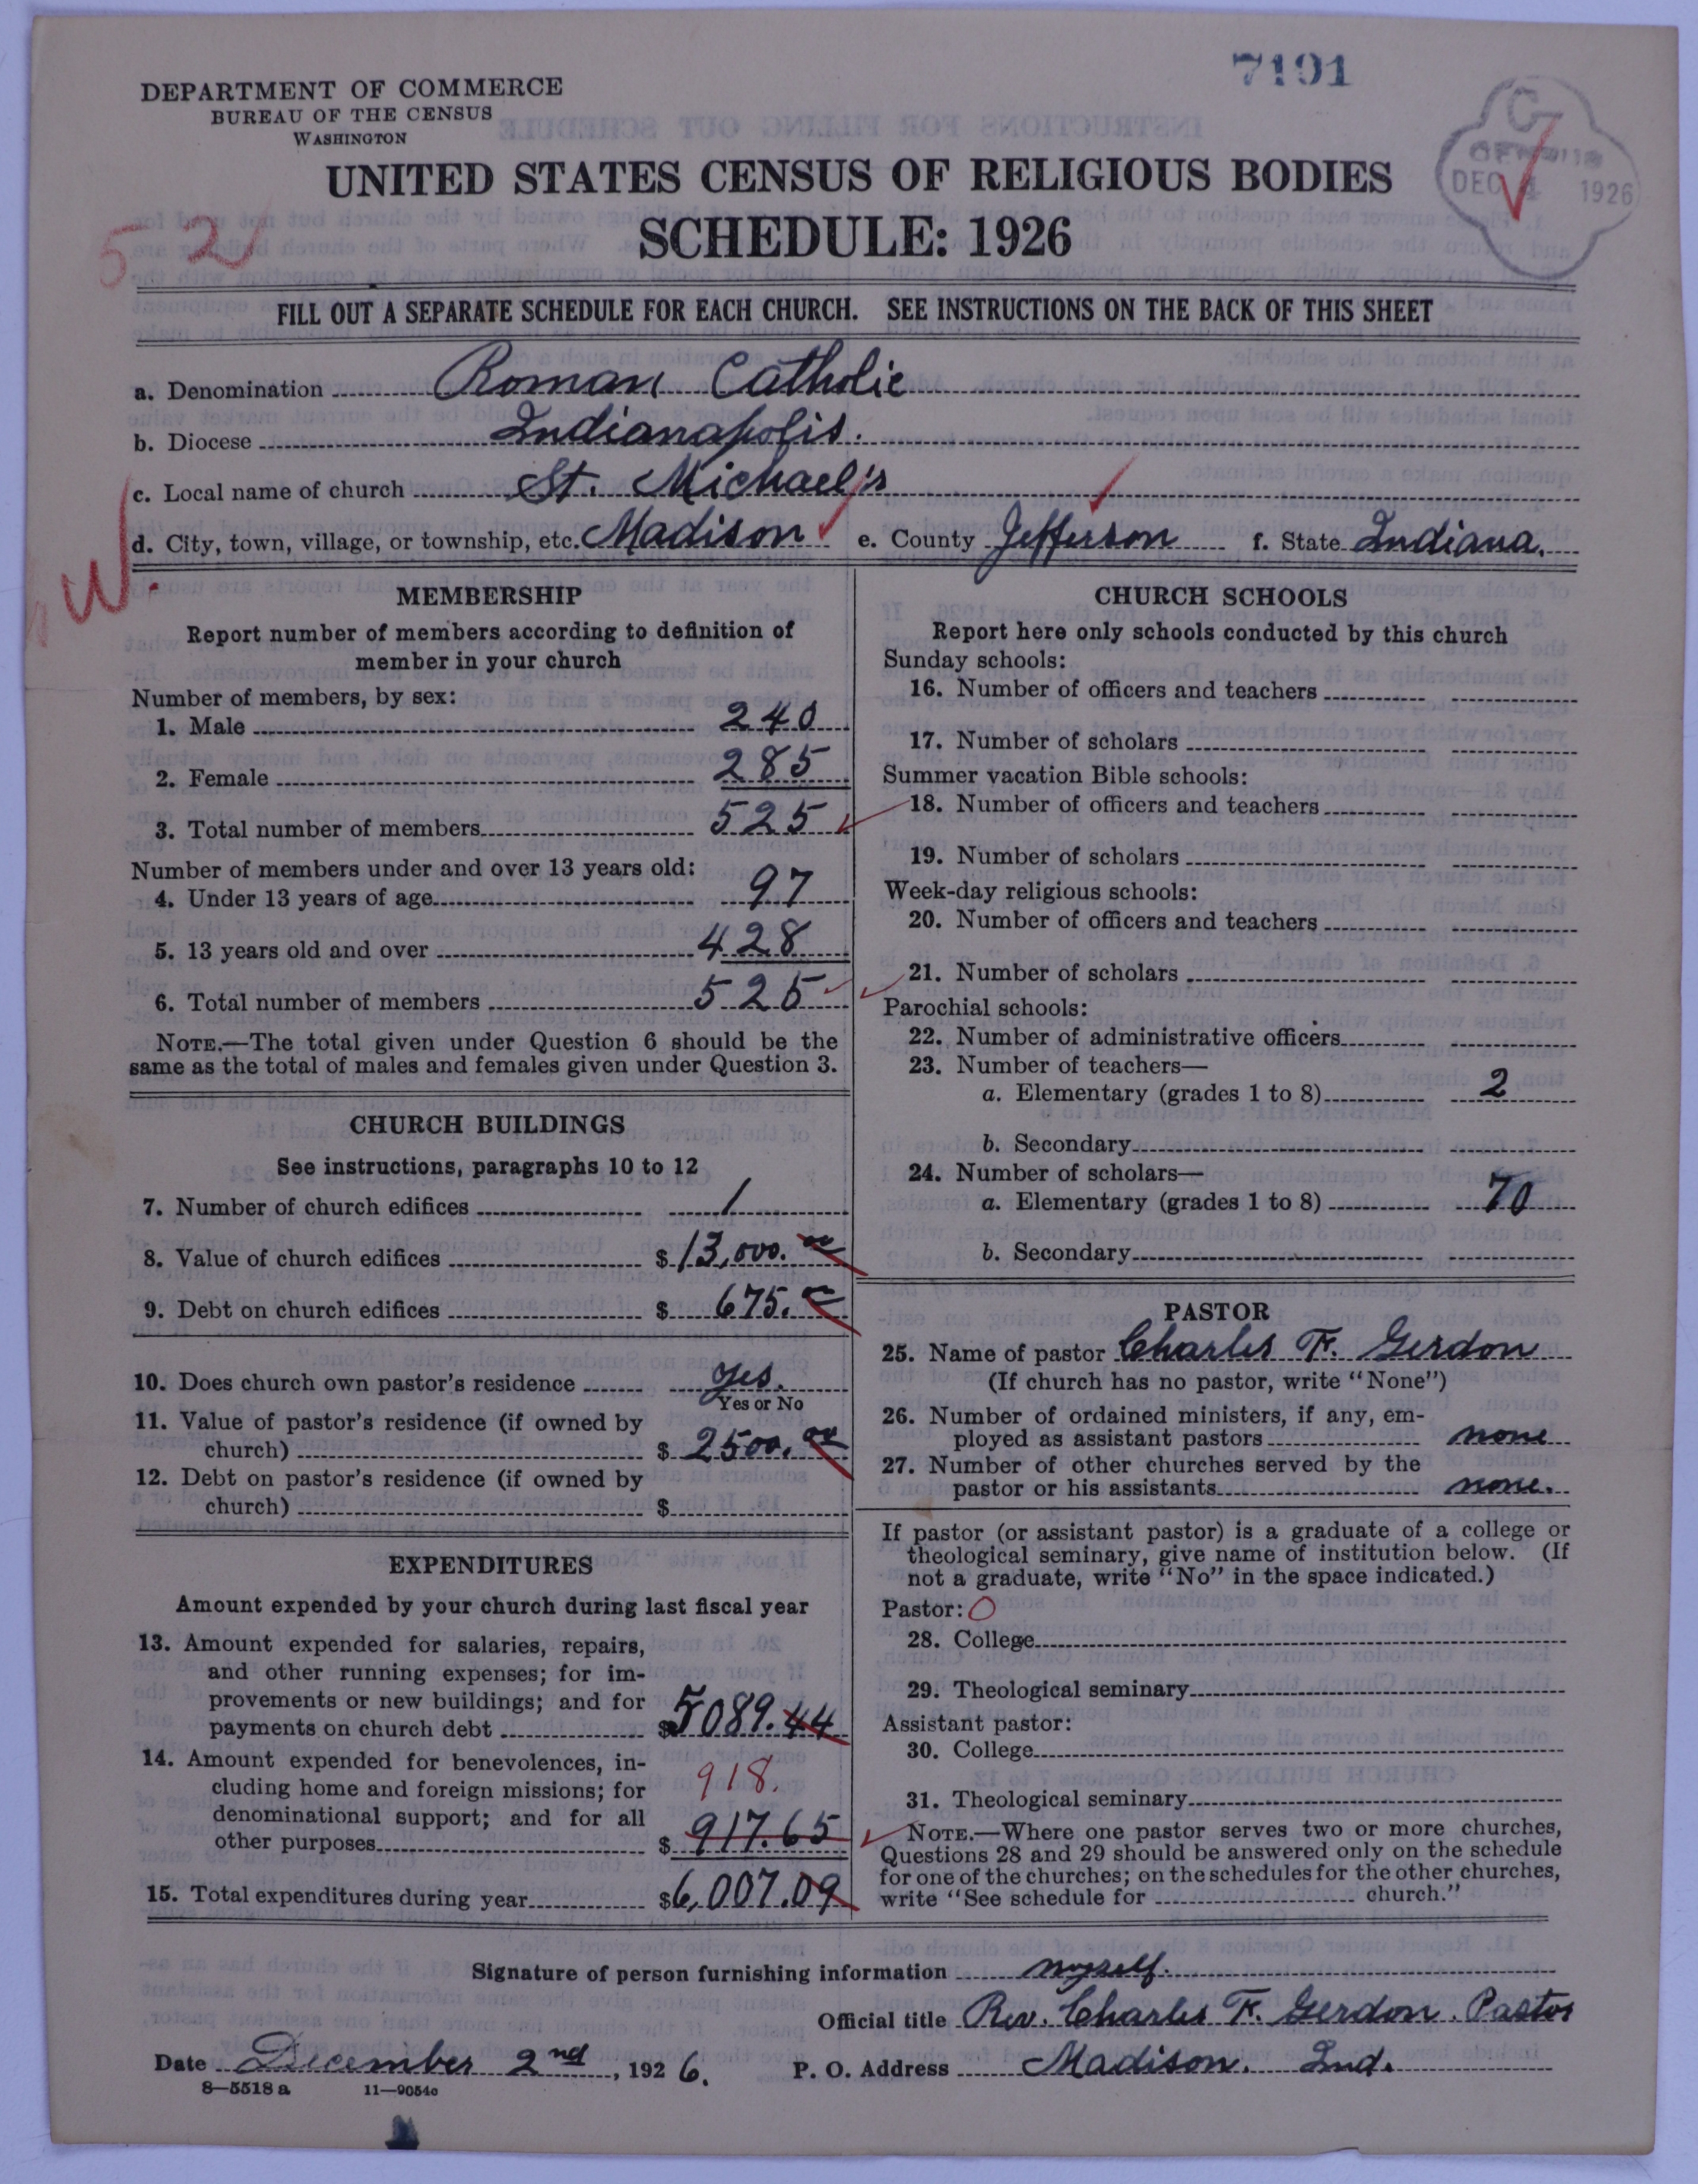 7191
DEPARTMENT OF COMMERCE
BUREAU OF THE CENSUS
WASHINGTON
UNITED STATES CENSUS OF RELIGIOUS BODIES
SCHEDULE: 1926
G
DEC 4 1926
52
FILL OUT A SEPARATE SCHEDULE FOR EACH CHURCH. SEE INSTRUCTIONS ON THE BACK OF THIS SHEET
a. Denomination Roman Catholic
b. Diocese Indianapolis.
c. Local name of church St. Michael's
d. City, town, village, or township, etc. Madison e. County Jefferson f. State Indiana.
W.
MEMBERSHIP
Report number of members according to definition of
member in your church
Number of members, by sex:
1. Male 240
2. Female 285
3. Total number of members 525
Number of members under and over 13 years old:
4. Under 13 years of age 97
5. 13 years old and over 428
6. Total number of members 525
NOTE.—The total given under Question 6 should be the
same as the total of males and females given under Question 3.
CHURCH BUILDINGS
See instructions, paragraphs 10 to 12
7. Number of church edifices 1
8. Value of church edifices $13,000.00
9. Debt on church edifices $ 675.00
10. Does church own pastor's residence yes.
Yes or No
11. Value of pastor's residence (if owned by
church) $ 2500.00
12. Debt on pastor's residence (if owned by
church) $
EXPENDITURES
Amount expended by your church during last fiscal year
13. Amount expended for salaries, repairs,
and other running expenses; for im-
provements or new buildings; and for
payments on church debt $5089.44
14. Amount expended for benevolences, in-
cluding home and foreign missions; for 918.
denominational support; and for all
other purposes $ 917.65
15. Total expenditures during year $6,007.09
CHURCH SCHOOLS
Report here only schools conducted by this church
Sunday schools:
16. Number of officers and teachers
17. Number of scholars
Summer vacation Bible schools:
18. Number of officers and teachers
19. Number of scholars
Week-day religious schools:
20. Number of officers and teachers
21. Number of scholars
Parochial schools:
22. Number of administrative officers
23. Number of teachers—
a. Elementary (grades 1 to 8) 2
b. Secondary
24. Number of scholars—
a. Elementary (grades 1 to 8) 70
b. Secondary
PASTOR
25. Name of pastor Charles F. Gerdon
(If church has no pastor, write "None")
26. Number of ordained ministers, if any, em-
ployed as assistant pastors none
27. Number of other churches served by the
pastor or his assistants none.
If pastor (or assistant pastor) is a graduate of a college or
theological seminary, give name of institution below. (If
not a graduate, write "No" in the space indicated.)
Pastor: O
28. College
29. Theological seminary
Assistant pastor:
30. College
31. Theological seminary
NOTE.—Where one pastor serves two or more churches,
Questions 28 and 29 should be answered only on the schedule
for one of the churches; on the schedules for the other churches,
write "See schedule for church."
Signature of person furnishing information myself.
Official title Rev. Charles F. Gerdon. Pastor
Date December 2nd, 1926. P. O. Address Madison. Ind.
8—5518 a 11—9054c